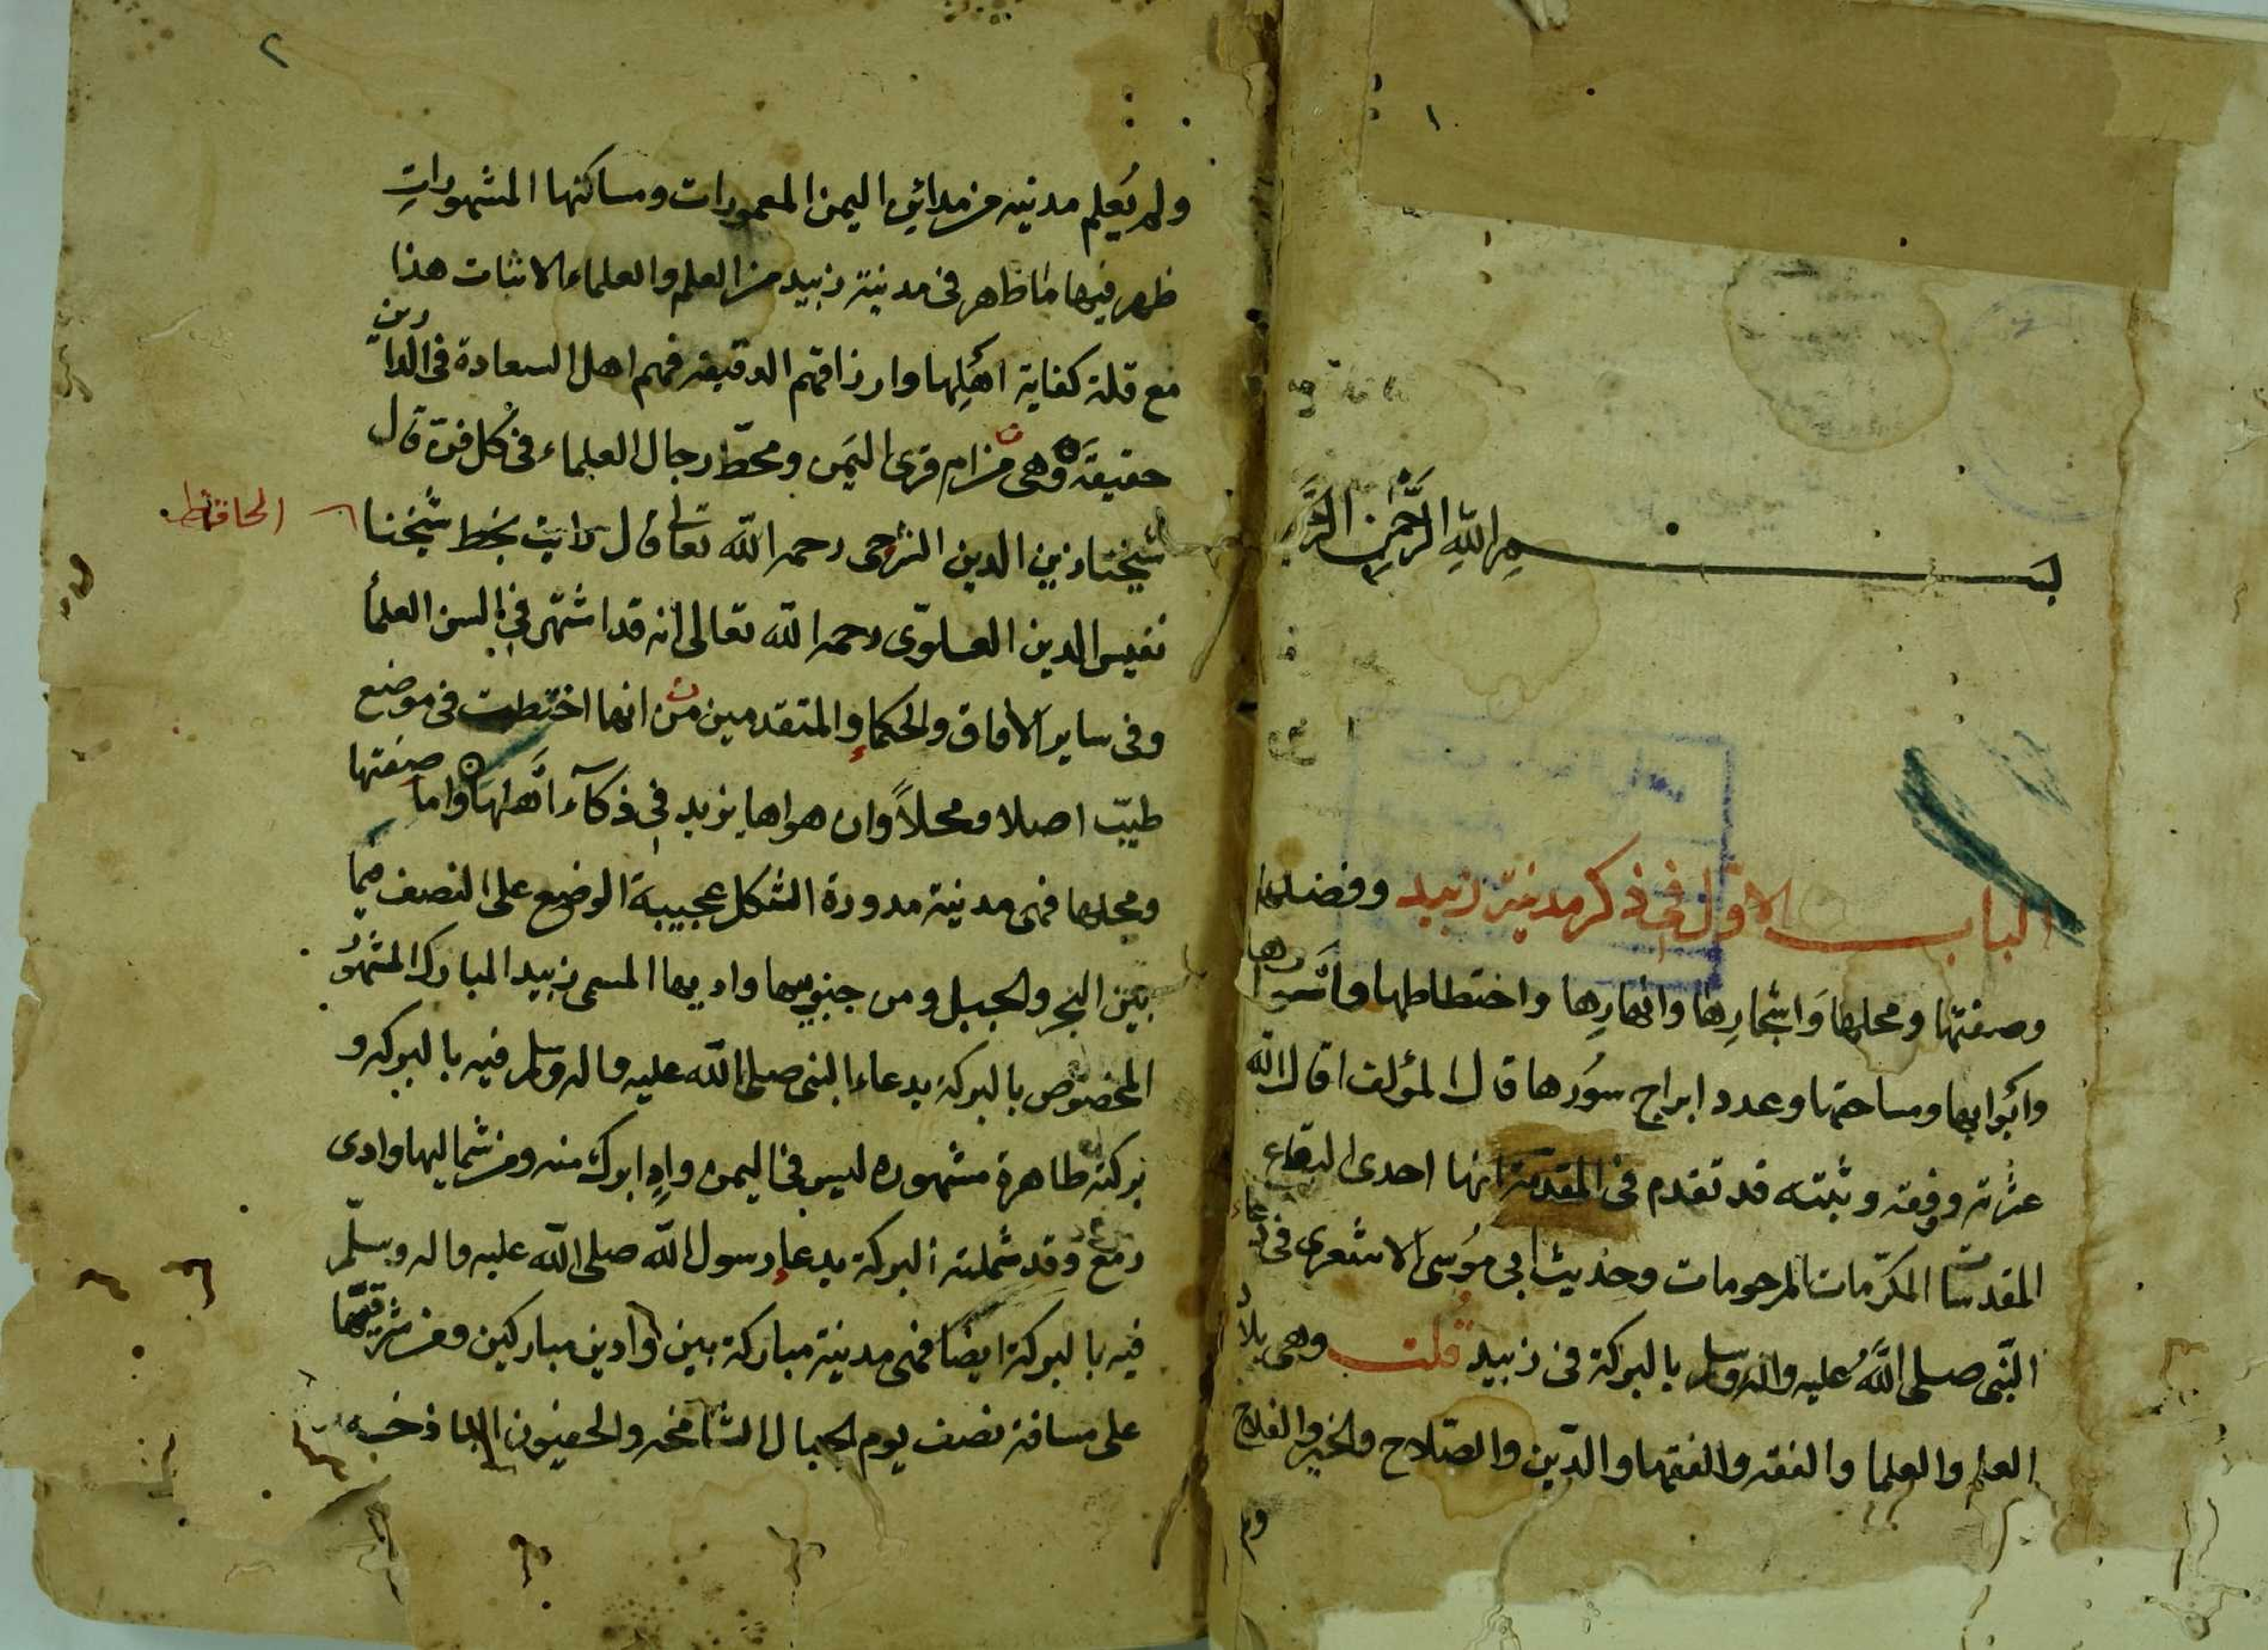 ١
بسم الله الرحمن الرحيم
الباب الاول في ذكر مدينة زبيد وفضلها
وصفتها ومحلها واشجارها وانهارها واختطاطها واسوارها
وابوابها ومساحتها وعدد ابراج سورها قال المؤلف اقال الله
عثرته ووفقه وثبته قد تقدم في المقدمة انها احدى البقاع
المقدسات المكرمات المرحومات وحديث ابي موسى الاشعري في دعاء
النبي صلى الله عليه واله وسلم بالبركة في زبيد قلت وهي بلاد
العلم والعلما والفقه والفقها والدين والصلاح والخير والفلاح
ولم
٢
ولم يُعلم مدينه من مداين اليمن المعمورات ومساكنها المشهورات
ظهر فيها ما ظاهر في مدينة زبيد من العلم والعلماء الاثبات هذا
مع قلة كفاية اهلها وارزاقهم الدقيقه فهم اهل السعادة في الدارين
حقيقة وهي من ام قرى اليمن ومحط رجال العلماء في كل فن قال
شيخنا زين الدين الشرجي رحمه الله تعالى قال رايت بخط شيخنا
الحافظ
نفيس الدين العلوي رحمه الله تعالى انه قد اشتهر في السن العلما
وفي ساير الافاق والحكماء والمتقدمين من انها اختطت في موضع
طيب اصلا ومحلاً وان هواها يزيد في ذكآء اهلها واما صفتها
ومحلها فهي مدينة مدورة الشكل عجيبة الوضع على النصف فيما
بين البحر والجبل ومن جنوبيها واديها المسمى زبيد المبارك المشهور
المخصوص بالبركة بدعاء النبي صلى الله عليه واله وسلم فيه بالبركه و
بركته ظاهرة مشهوره ليس في اليمن وادٍ ابرك منه ومن شماليها وادي
رمع وقد شملته البركة بدعاء رسول الله صلى الله عليه واله وسلم
فيه بالبركة ايضا فهي مدينة مباركة بين وادين مباركين ومن شرقيها
على مسافة نصف يوم الجبال الشامخه والحصون الباذخه